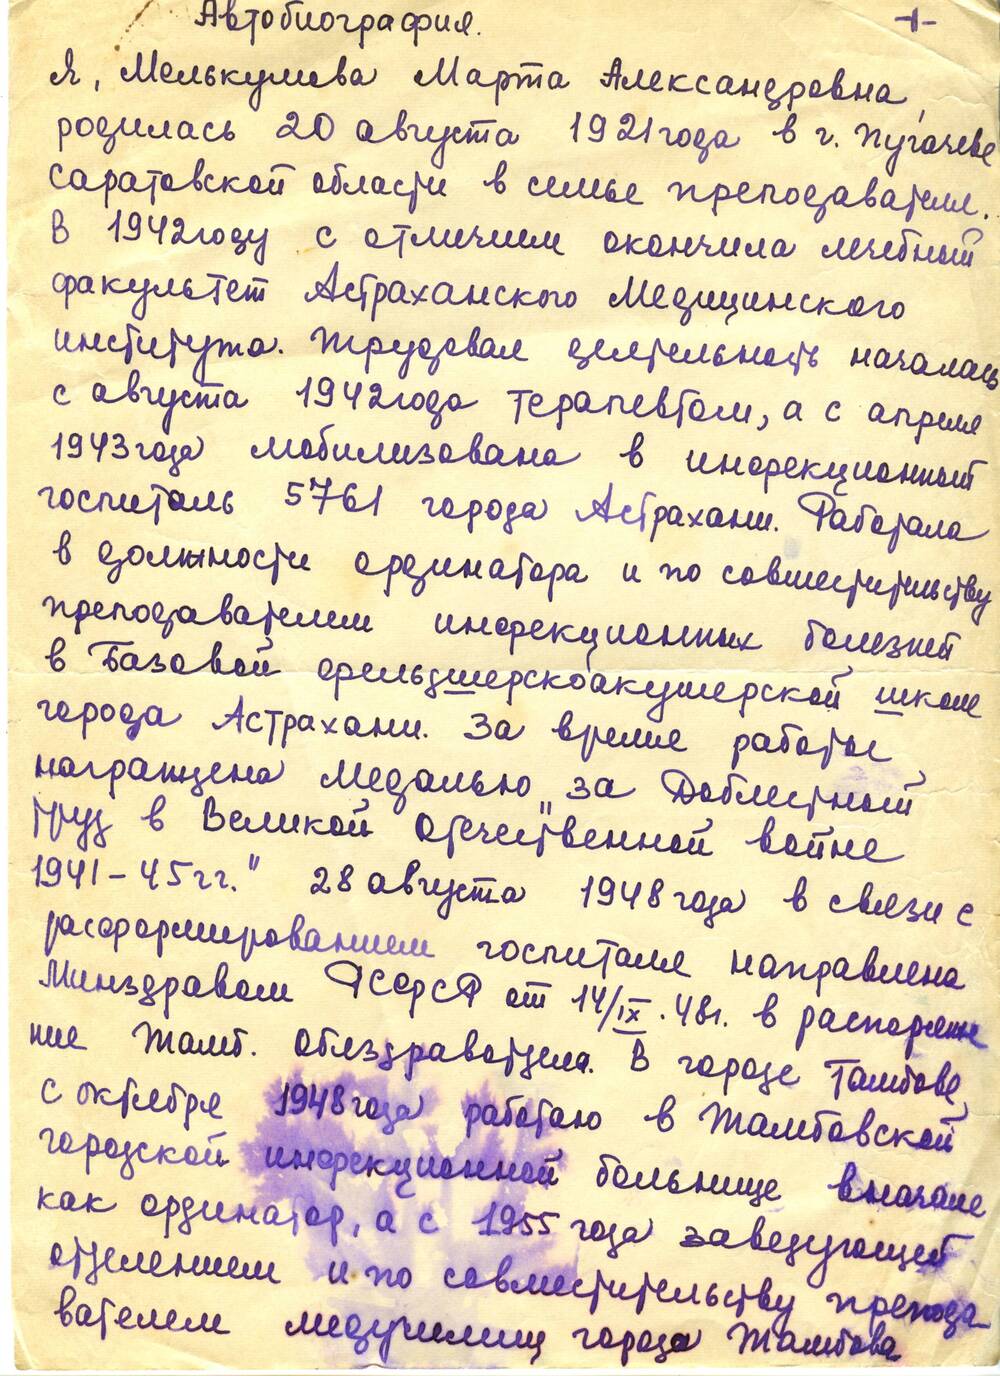 Автобиография.
-1-
Я, Мелькумова Марта Александровна,
родилась 20 августа 1921 года в г. Пугачеве
Саратовской области в семье преподавателя.
В 1942 году с отличием окончила лечебный
факультет Астраханского Медицинского
института. Трудовая деятельность началась
с августа 1942 года терапевтом, а с апреля
1943 года мобилизована в инфекционный
госпиталь 5761 города Астрахани. Работала
в должности ординатора и по совместительству
преподавателем инфекционных болезней
в Базовой фельдшерскоакушерской школе
города Астрахани. За время работы
награждена медалью „За Доблестный
труд в Великой отечественной войне
1941-45 гг." 28 августа 1948 года в связи с
расформированием госпиталя направлена
Минздравом РСФСР от 14/IX.48г. в распоряже
ние Тамб. облздравотдела. В городе Тамбове
с октября 1948 года работаю в Тамбовской
городской инфекционной больнице вначале
как ординатор, а с 1955 года заведующей
отделением и по совместительству препода
вателем медучилищ города Тамбова